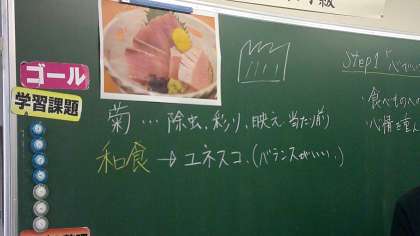 ゴール
学習課題
菊 … 除虫、彩り、映え 当たり前
和食 → ユネスコ。(バランスがいい。)
Step1
・食べもの
・心情を